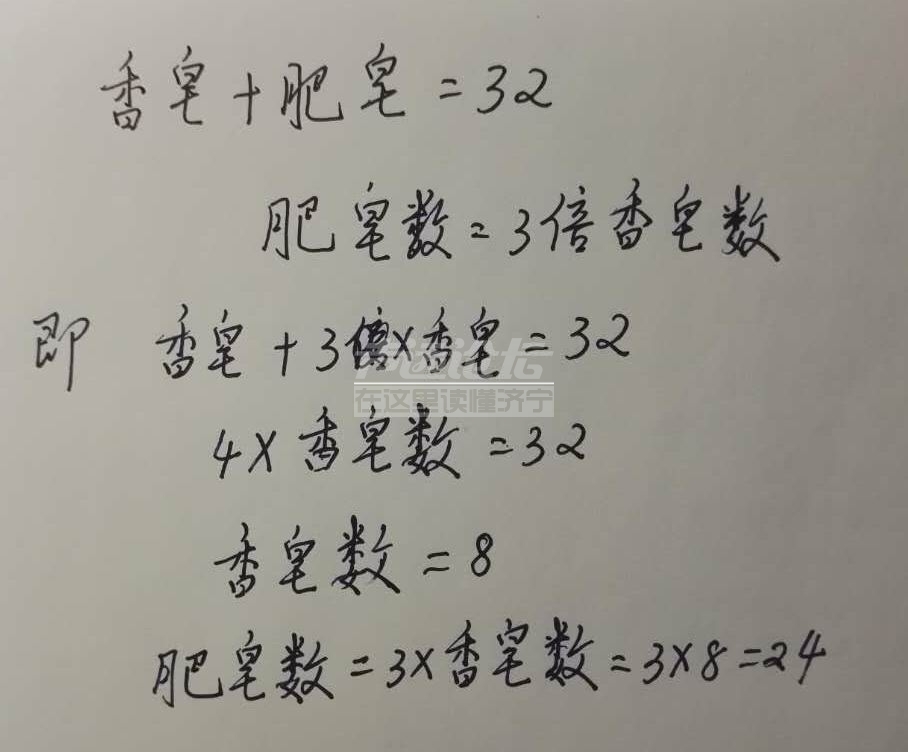 香皂+肥皂=32
肥皂数=3倍香皂数
即 香皂+3倍×香皂=32
在这里读懂济宁
4×香皂数=32
香皂数=8
肥皂数=3×香皂数=3×8=24